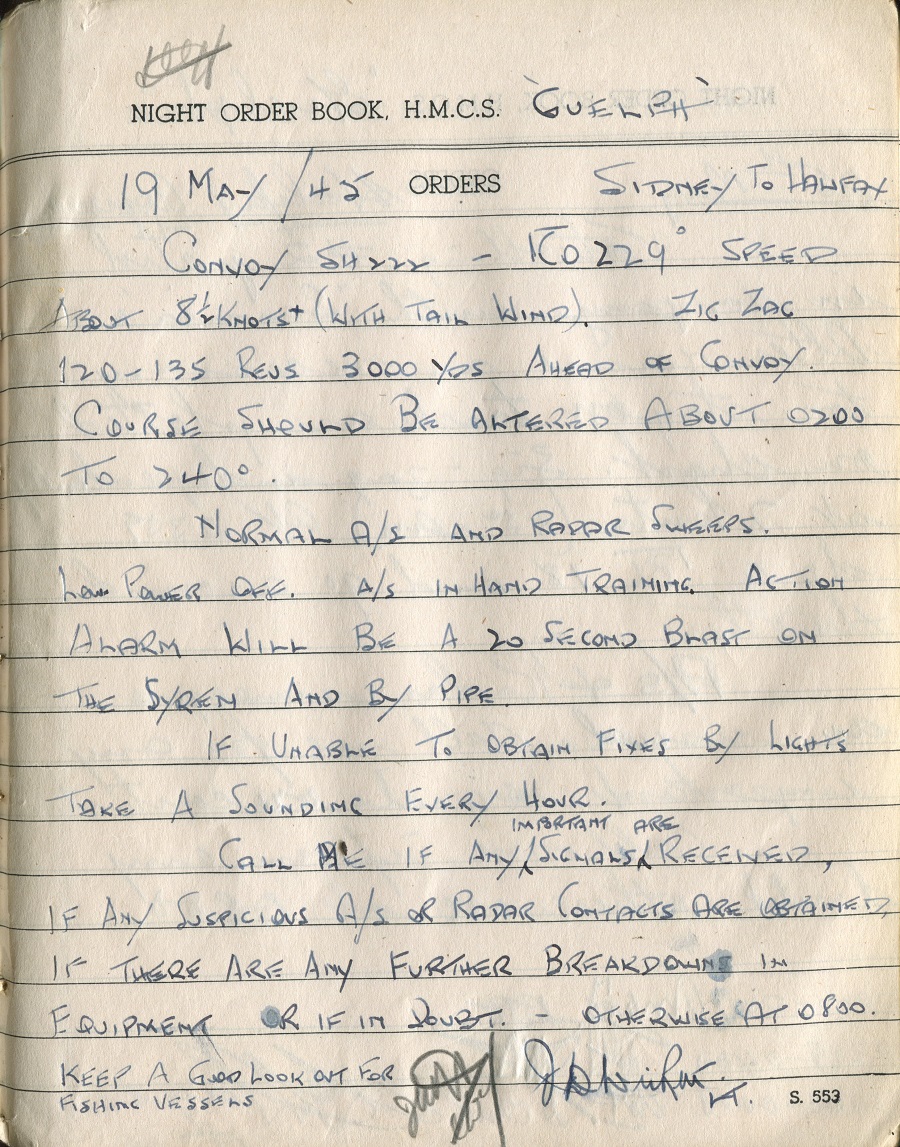 NIGHT ORDER BOOK, H.M.C.S. "GUELPH"
19 MAY/45 ORDERS SIDNEY TO HALIFAX
CONVOY SH222 - 229° SPEED
ABOUT 8½ KNOTS+ (WITH TAIL WIND). ZIG ZAG
120-135 REVS 3000 YDS AHEAD OF CONVOY.
COURSE SHOULD BE ALTERED ABOUT 0200
TO 240°.
NORMAL A/S AND RADAR SWEEPS.
LOW POWER OFF. A/S IN HAND TRAINING. ACTION
ALARM WILL BE A 20 SECOND BLAST ON
THE SYREN AND BY PIPE.
IF UNABLE TO OBTAIN FIXES BY LIGHTS
TAKE A SOUNDING EVERY HOUR.
IMPORTANT ARE
CALL ME IF ANY/SIGNALS/RECEIVED,
IF ANY SUSPICIOUS A/S OR RADAR CONTACTS ARE OBTAINED,
IF THERE ARE ANY FURTHER BREAKDOWNS IN
EQUIPMENT OR IF IN DOUBT. - OTHERWISE AT 0800.
KEEP A GOOD LOOK OUT FOR
FISHING VESSELS
S. 553